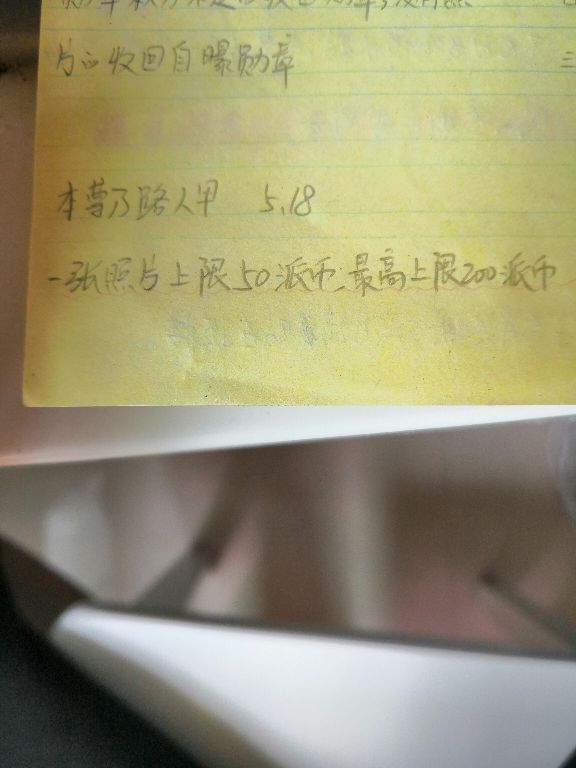 片的收回自曝勋章
三
本尊乃路人甲 5.18
一张照片上限50派币.最高上限200派币